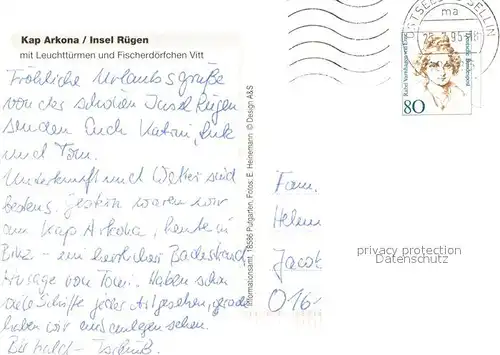 Kap Arkona / Insel Rügen
mit Leuchttürmen und Fischerdörfchen Vitt
Fröhliche Urlaubsgrüße
von der schönen Insel Rügen
senden Euch Katrin,
und Tom.
Unterkunft und Wetter sind
bestens. Gestern waren wir
am Kap Arkona, heute in
Binz - ein herrlicher Badestrand
Aussage von Tom. Haben schon
viele Schiffe jeder Art gesehen, gerade
haben wir eins anlegen sehen.
Bis bald -
Informationsamt, 18556 Putgarten, Fotos: E. Heinemann © Design A&S
OSTSEEBAD SELLIN
ma
Deutsche Bundespost
80
Fam.
Helm
Jacob
016
privacy protection
Datenschutz